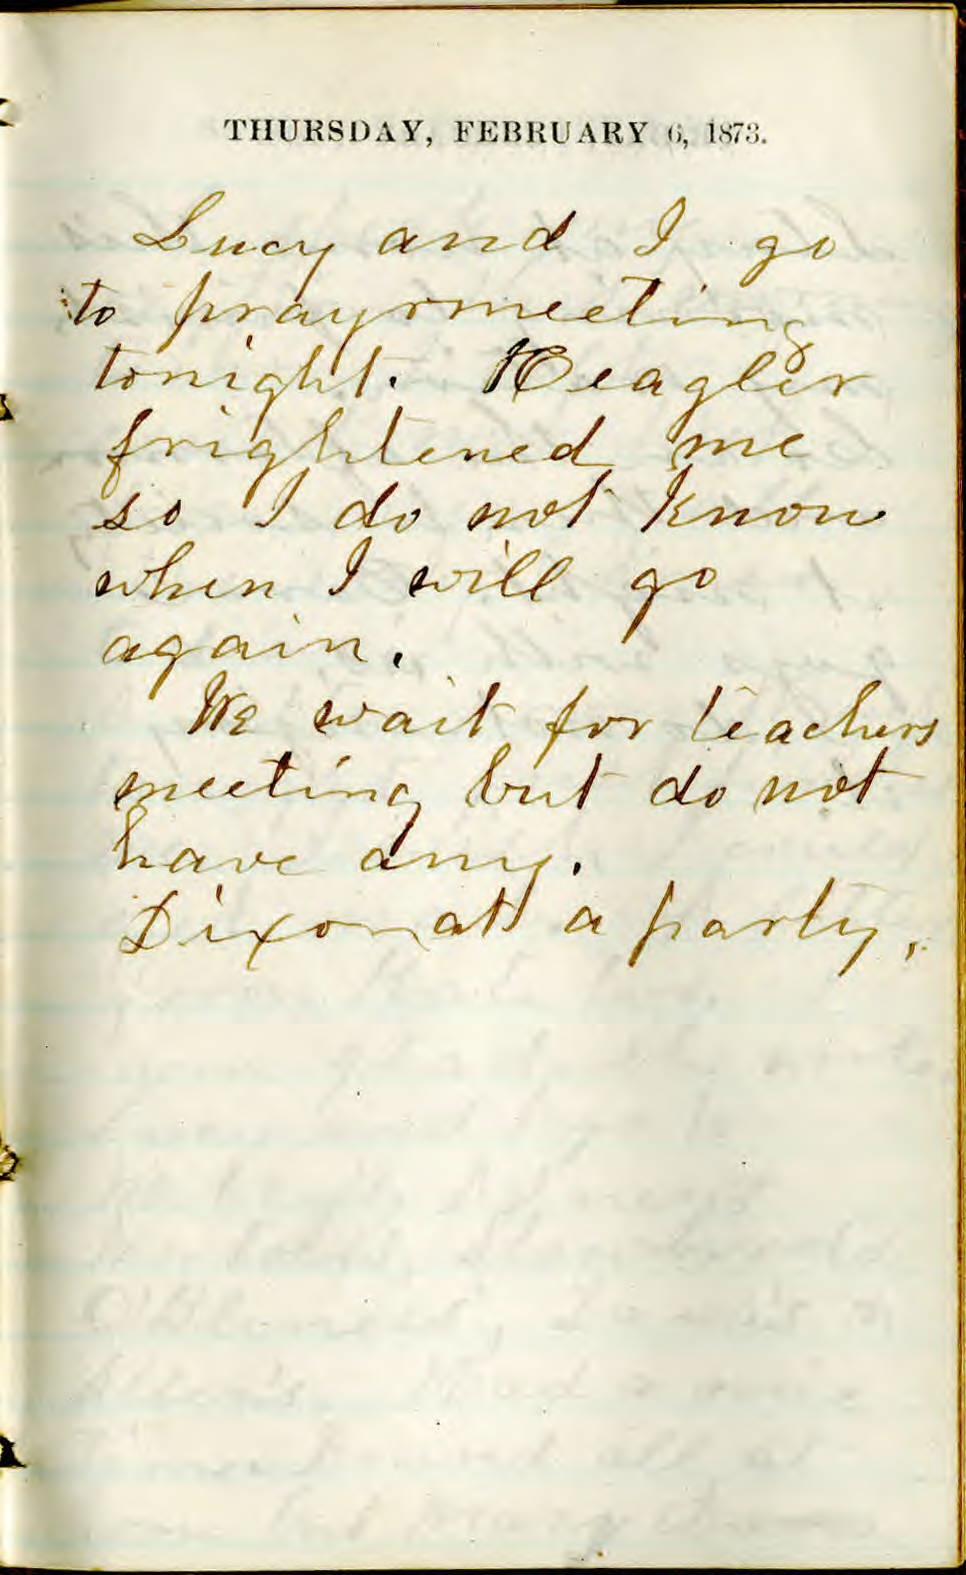 THURSDAY, FEBRUARY 6, 1873.
Lucy and I go
to prayrmeeting
tonight. Heagler
frightened me
so I do not know
when I will go
again.
We wait for teachers
meeting but do not
have any.
Dixon at a party.